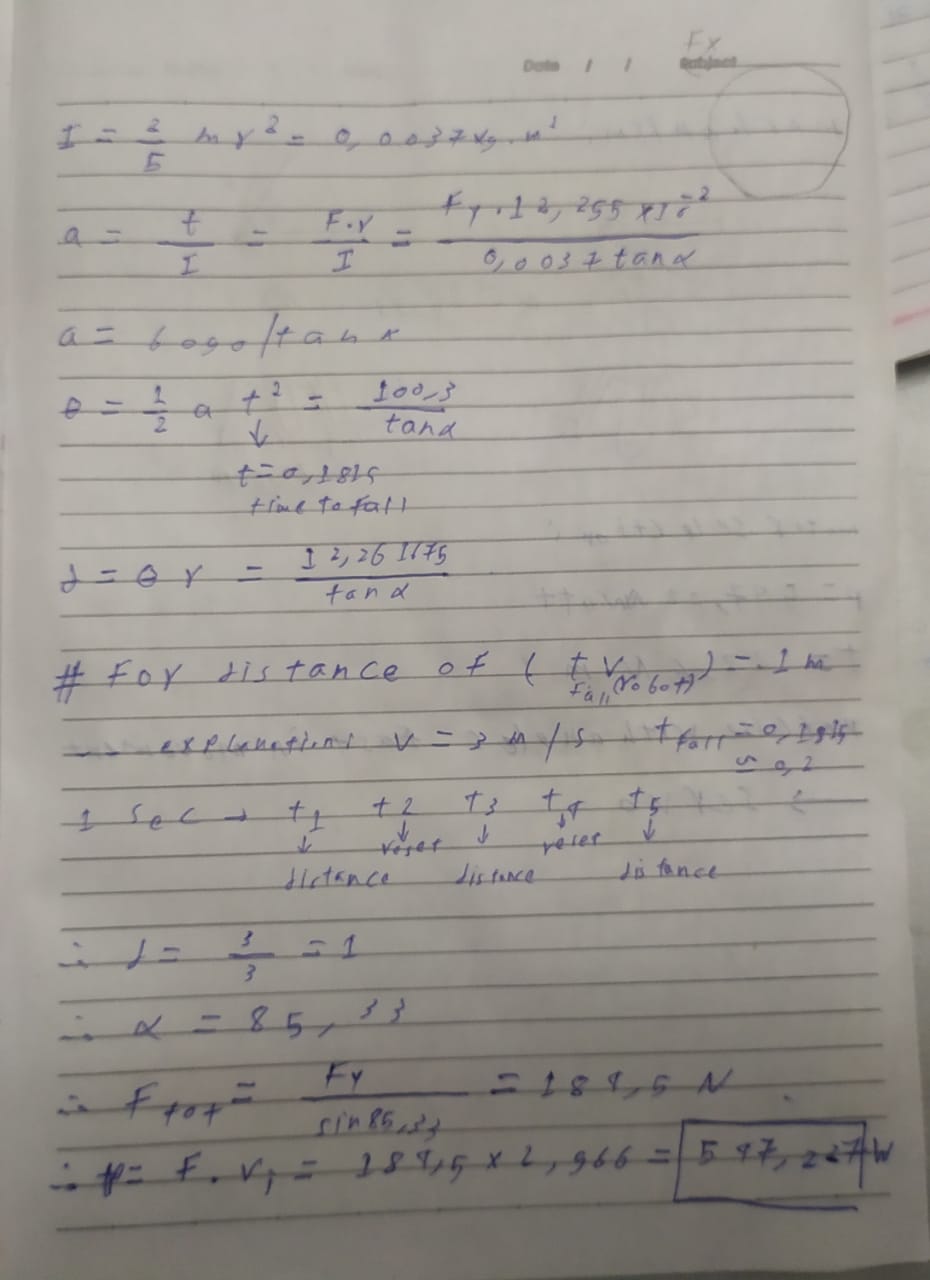 Fx
Date / / Subject
I = 2/5 m r² = 0,0037 kg.m²
a = t/I = F.r/I = Fy.12,255 x10⁻²/0,0037 tanα
a = 6090/tanα
θ = 1/2 a t² = 100,3/tanα
↓
t=0,181s
time to fall
d = θ r = 12,261175/tanα
# For distance of ( t fall v (robot) ) = 1 m
v = 3 m/s t fall = 0,181s
≈ 0,2
1 sec → t1 t2 t3 t4 t5
↓ ↓ ↓ ↓ ↓
reset reset
distance distance distance
∴ d = 3/3 = 1
∴ α = 85,33
∴ Ftot = Fy/sin85,33 = 184,5 N
∴ P = F.V, = 184,5 x 2,966 = 547,227 W